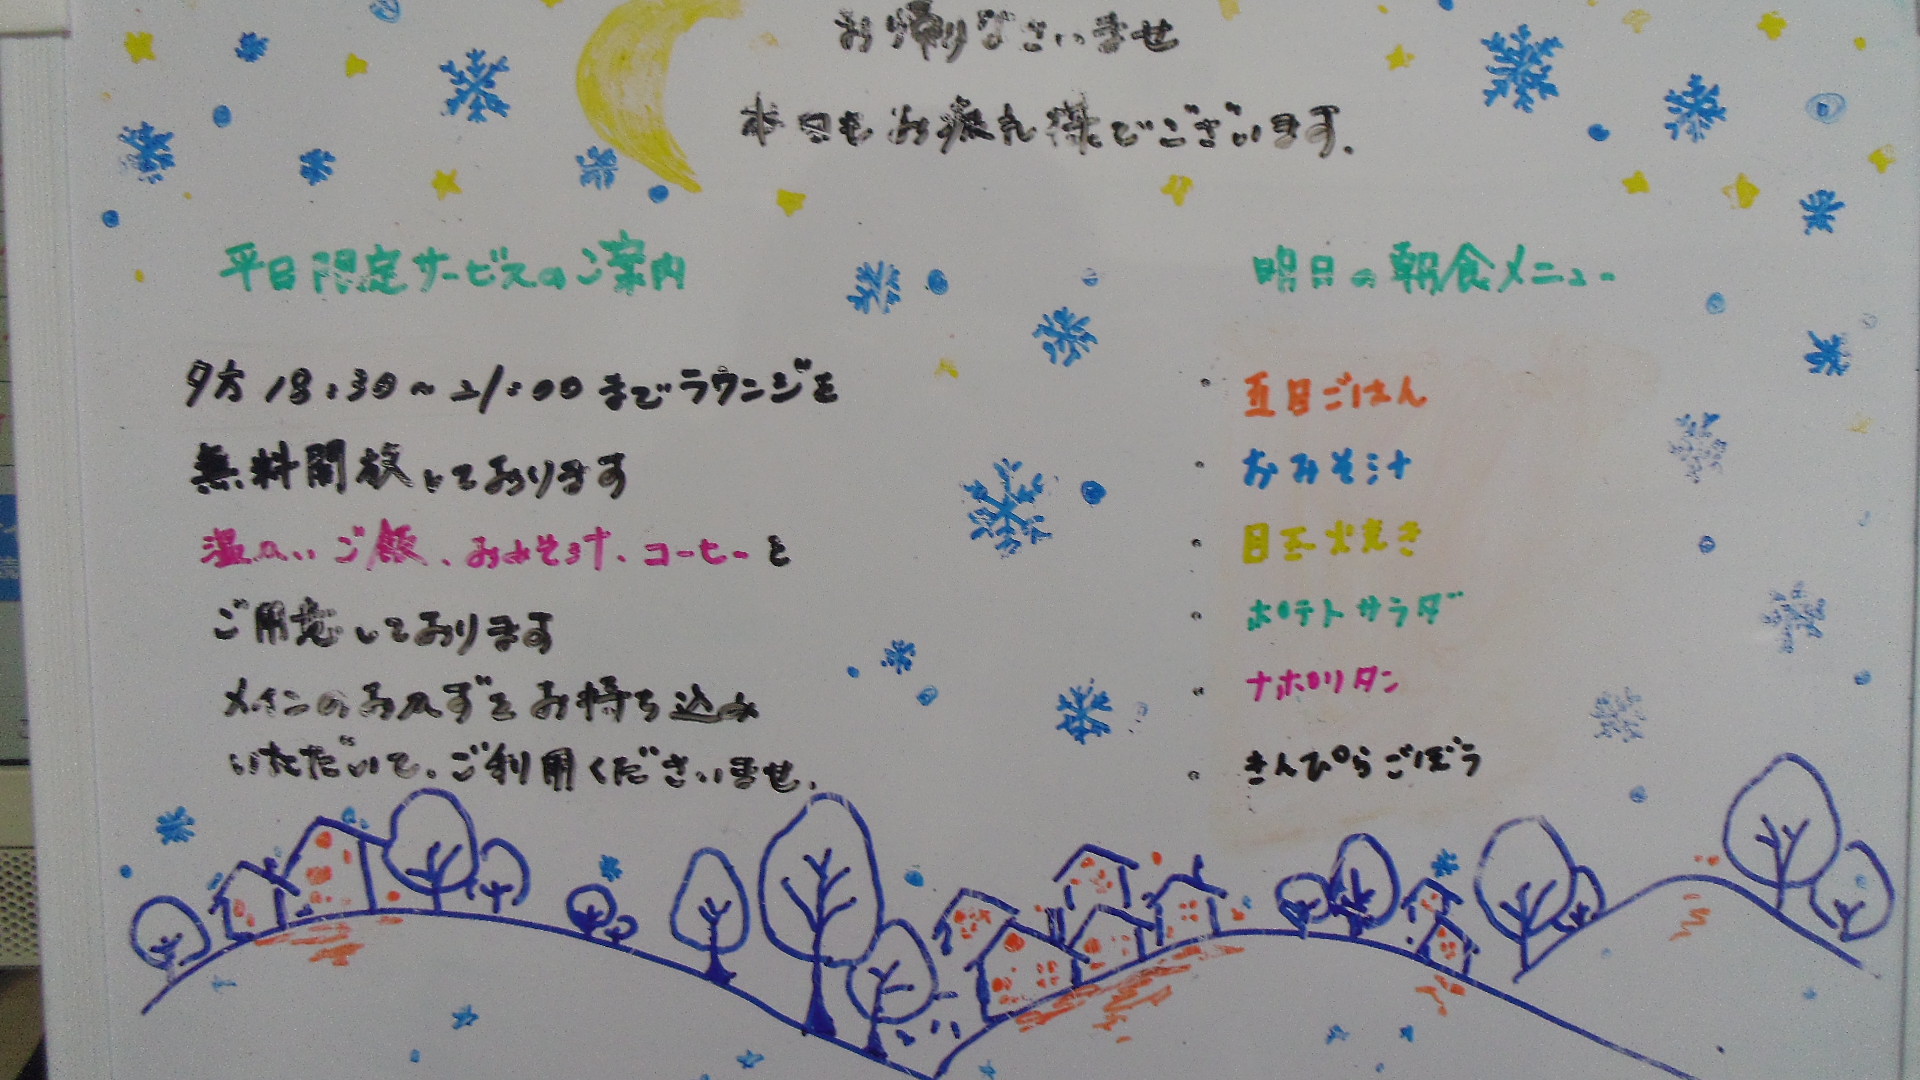 お帰りなさいませ
本日もお疲れ様でございます.
平日限定サービスのご案内
夕方 18:30~21:00 までラウンジを
無料開放しております
温かいご飯、おみそ汁、コーヒーを
ご用意しております
メインのおかずをお持ち込み
いただいて。ご利用くださいませ.
明日の朝食メニュー
・五目ごはん
・おみそ汁
・目玉焼き
・ポテトサラダ
・ナポリタン
・きんぴらごぼう